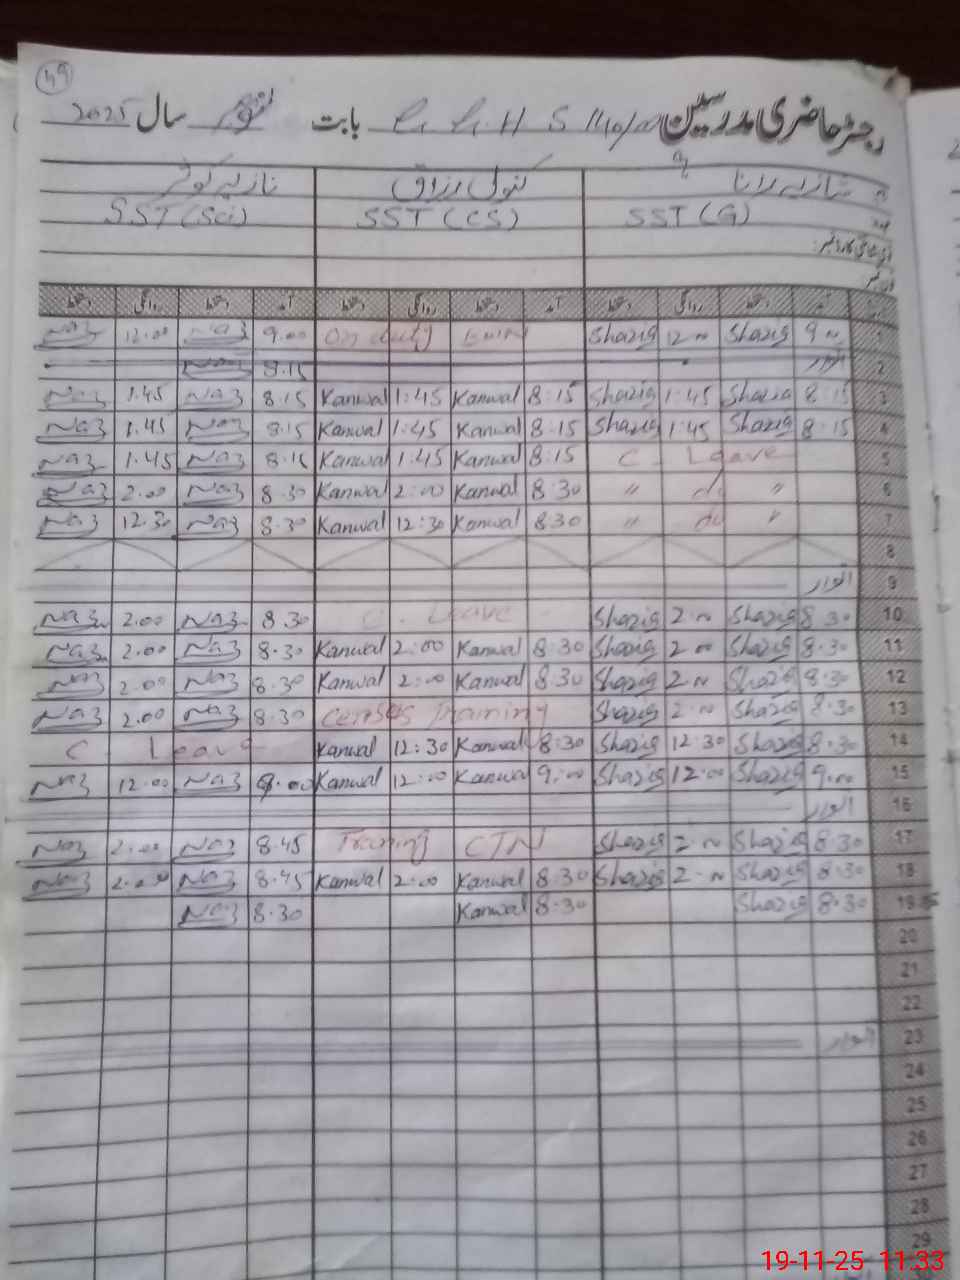 49
رجسٹر حاضری مدرسین G. G. H. S 1110/ بابت نومبر سال 2025
شازیہ رانا کنول رزاق نازیہ کوثر
SST (G) SST (CS) SST (Sci)
آمد دستخط روانگی دستخط آمد دستخط روانگی دستخط آمد دستخط روانگی دستخط
Naz 12.00 Naz 9.00 On duty Shazig 12 Shazig 9 1
Naz 8.15 اتوار 2
Naz 1.45 Naz 8.15 Kanwal 1:45 Kanwal 8:15 Shazig 1:45 Shazig 8:15 3
Naz 1.45 Naz 8.15 Kanwal 1:45 Kanwal 8:15 Shazig 1:45 Shazig 8:15 4
Naz 1.45 Naz 8.15 Kanwal 1:45 Kanwal 8:15 C - Leave 5
Naz 2.00 Naz 8.30 Kanwal 2:00 Kanwal 8:30 〃 do 〃 6
Naz 12.30 Naz 8.30 Kanwal 12:30 Kanwal 8:30 〃 do 〃 7
8
اتوار 9
Naz 2.00 Naz 8.30 C. Leave - Shazig 2.00 Shazig 8.30 10
Naz 2.00 Naz 8.30 Kanwal 2:00 Kanwal 8:30 Shazig 2.00 Shazig 8.30 11
Naz 2.00 Naz 8.30 Kanwal 2:00 Kanwal 8:30 Shazig 2.00 Shazig 8.30 12
Naz 2.00 Naz 8.30 Census Training Shazig 2.00 Shazig 8.30 13
C - Leave Kanwal 12:30 Kanwal 8:30 Shazig 12.30 Shazig 8.30 14
Naz 12.00 Naz 9.00 Kanwal 12:00 Kanwal 9:00 Shazig 12.00 Shazig 9.00 15
اتوار 16
Naz 2.00 Naz 8.45 Training CTN Shazig 2.00 Shazig 8.30 17
Naz 2.00 Naz 8.45 Kanwal 2:00 Kanwal 8:30 Shazig 2.00 Shazig 8.30 18
Naz 8.30 Kanwal 8:30 Shazig 8.30 19
20
21
22
اتوار 23
24
25
26
27
28
29
19-11-25 11:33